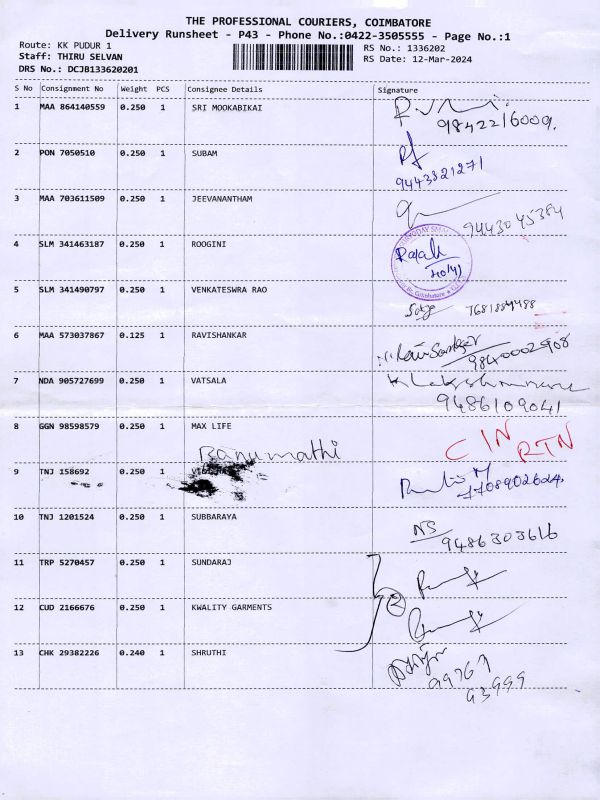 THE PROFESSIONAL COURIERS, COIMBATORE
Delivery Runsheet - P43 - Phone No.:0422-3505555 - Page No.:1
Route: KK PUDUR 1
Staff: THIRU SELVAN
DRS No.: DCJB133620201
RS No.: 1336202
RS Date: 12-Mar-2024
S No Consignment No Weight PCS Consignee Details Signature
1 MAA 864140559 0.250 1 SRI MOOKABIKAI
9842216009.
2 PON 7050510 0.250 1 SUBAM
9443321271
3 MAA 703611509 0.250 1 JEEVANANTHAM
9443045384
4 SLM 341463187 0.250 1 ROOGINI
Rajah
5 SLM 341490797 0.250 1 VENKATESWRA RAO
6 MAA 573037867 0.125 1 RAVISHANKAR
9840002908
7 NDA 905727699 0.250 1 VATSALA
9486109041
8 GGN 98598579 0.250 1 MAX LIFE
C IN RTN
Banumathi
9 TNJ 158692 0.250 1
7708902624.
10 TNJ 1201524 0.250 1 SUBBARAYA
NS
9486303616
11 TRP 5270457 0.250 1 SUNDARAJ
2
12 CUD 2166676 0.250 1 KWALITY GARMENTS
13 CHK 29382226 0.240 1 SHRUTHI
99767
93999